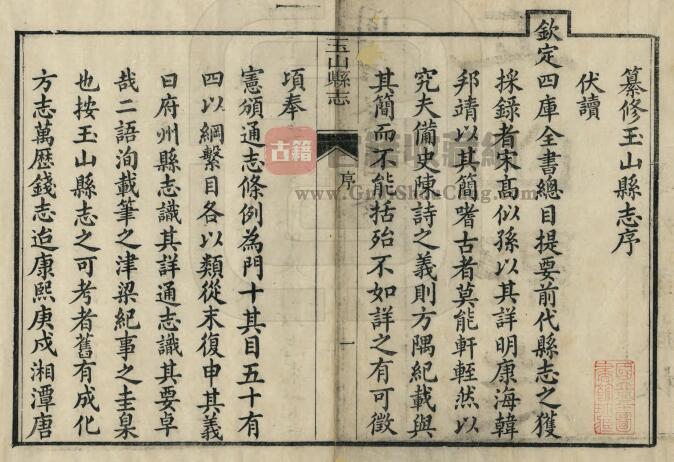 纂修玉山縣志序
伏讀
欽定四庫全書總目提要前代縣志之獲
採録者宋高似孫以其詳明康海韓
邦靖以其簡嗜古者莫能軒輊然以
究夫備史陳詩之義則方隅紀載與
其簡而不能括殆不如詳之有可徵
玉山縣志
序
一
頃奉
憲頒通志條例為門十其目五十有
四以綱繫目各以類從末復申其義
曰府州縣志識其詳通志識其要卓
哉二語洵載筆之津梁紀事之圭臬
也按玉山縣志之可考者舊有成化
方志萬歷錢志迨康熙庚戌湘潭唐
古籍
www.GuJiShuCang.com